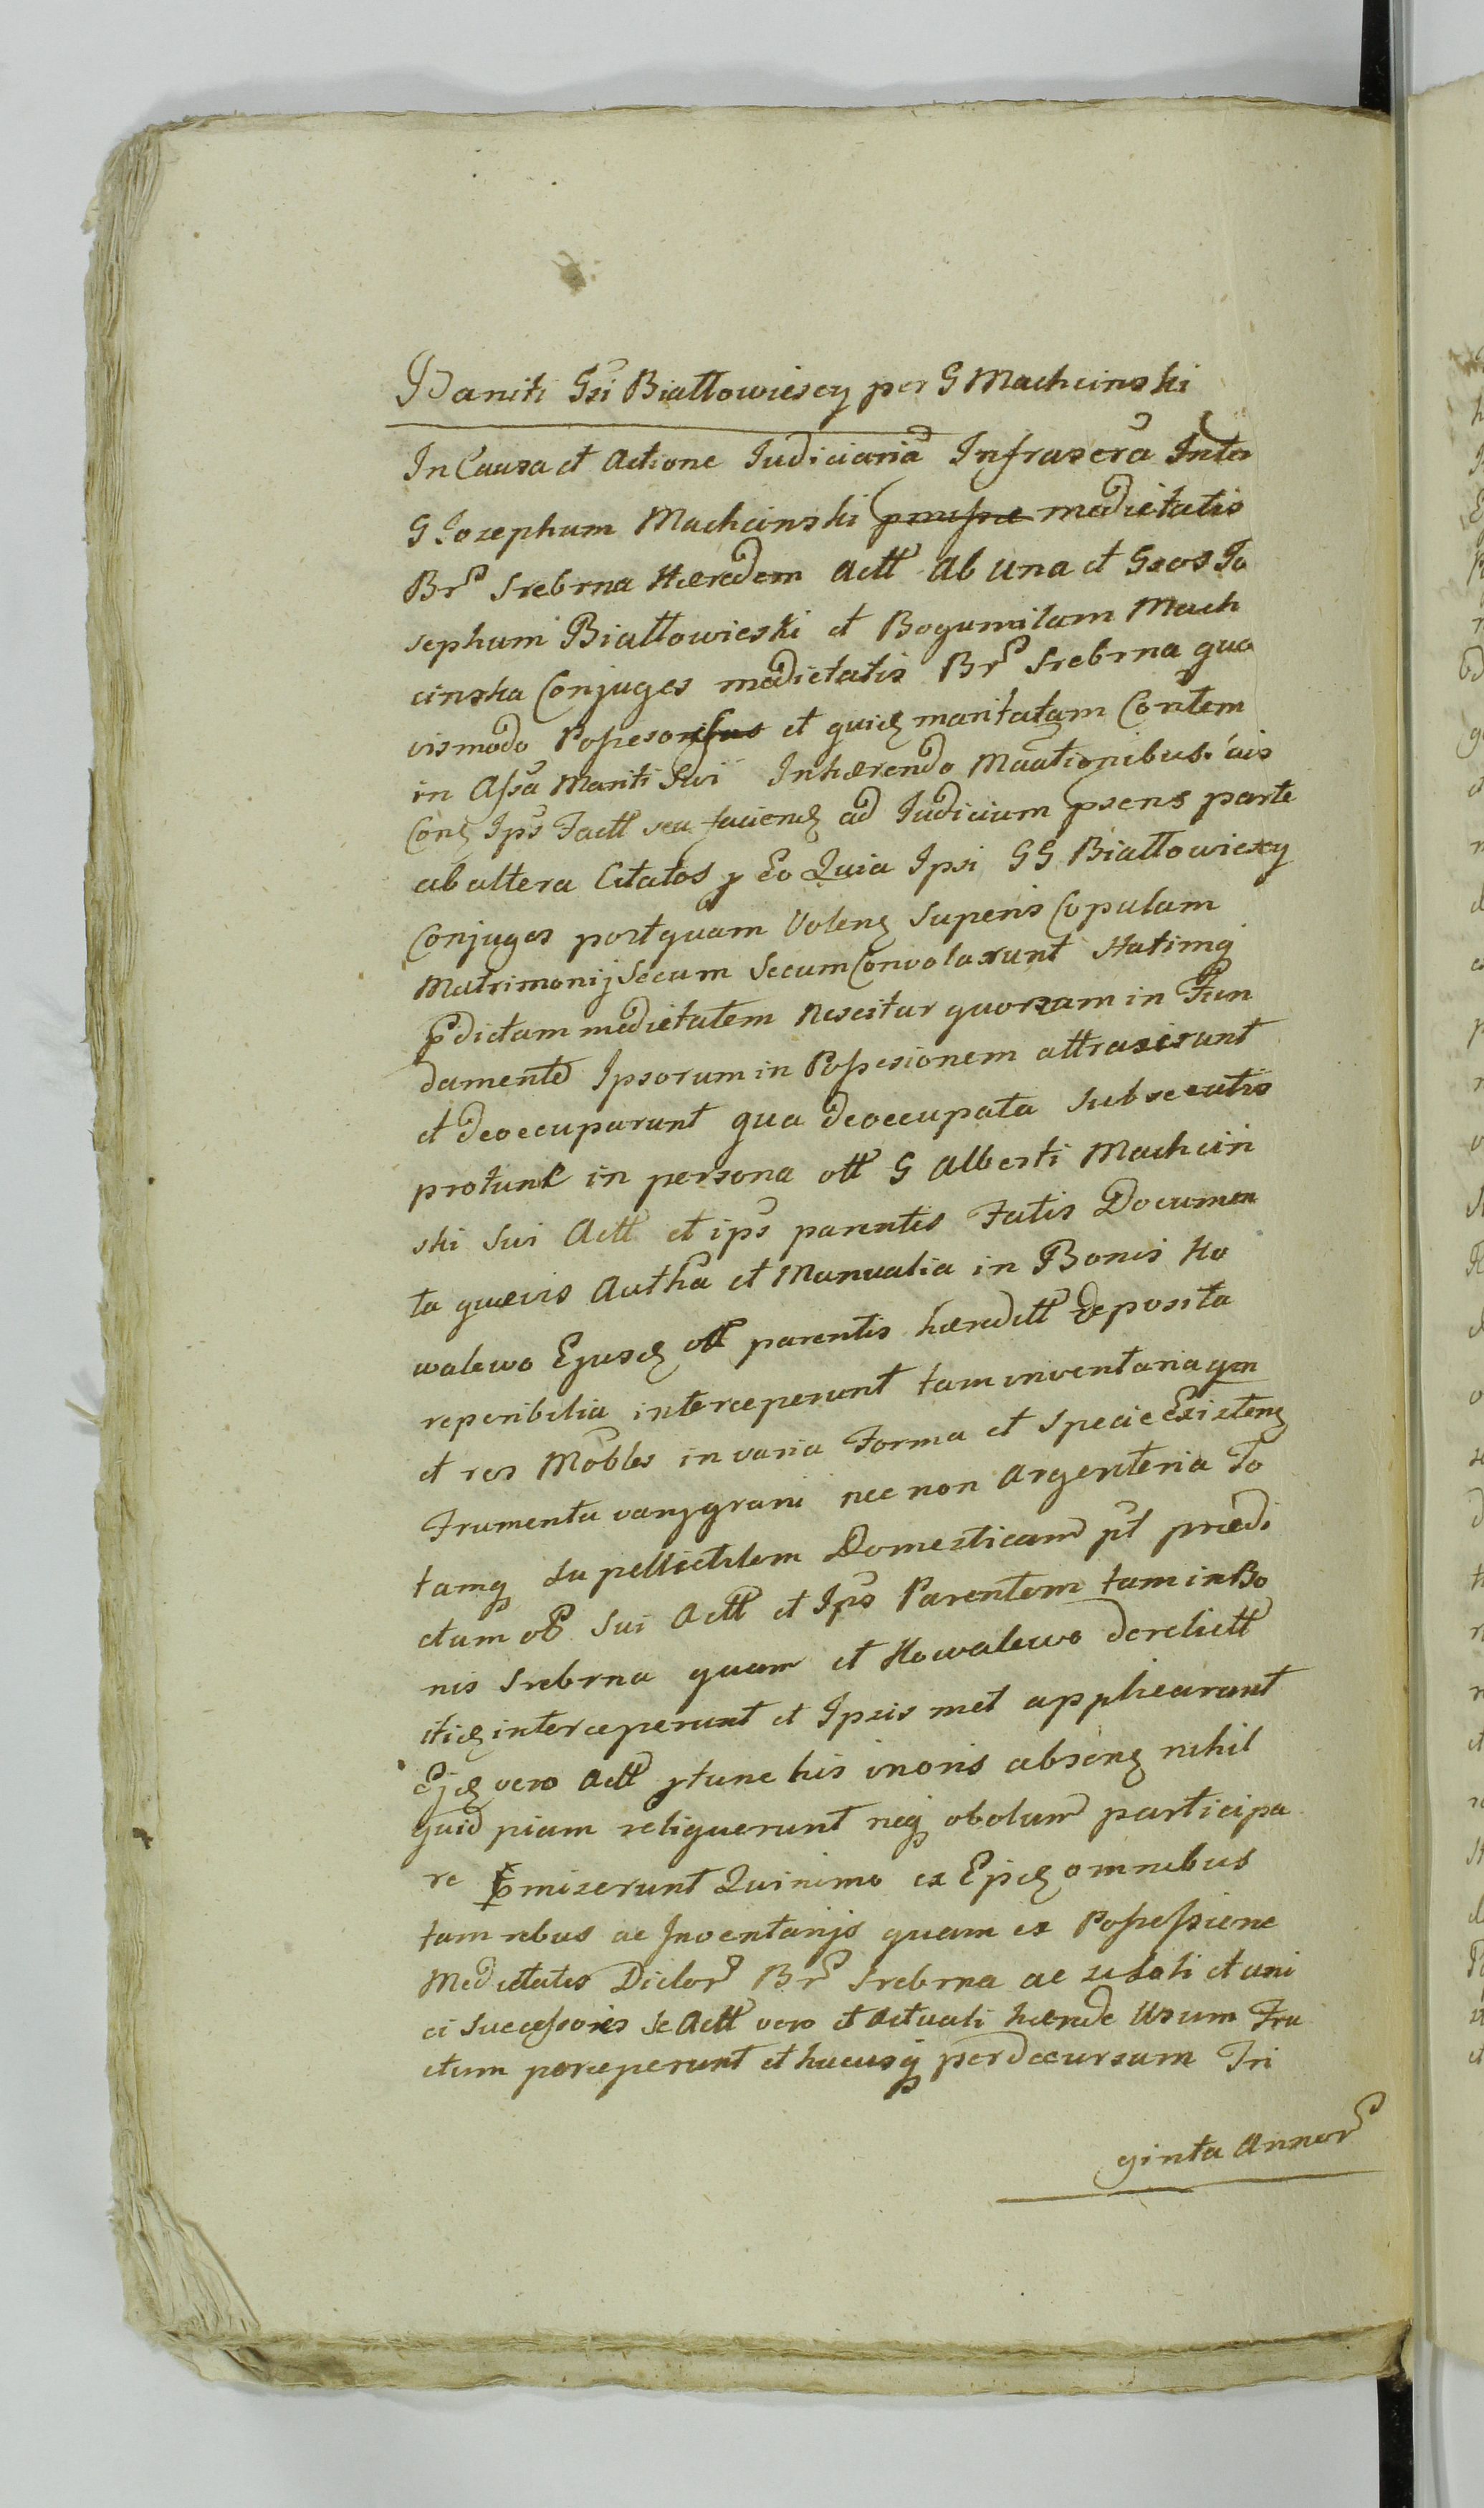 Baniti Gsi Białłowiescy per G Machcinski
In Causa et Actione Judiciaria Infrascra Inter
G Josephum Machcinski medietatis
Br Srebrna Hæredem Actt Ab una et Gsos Jo
sephum Białłowieski et Bogumilam Mach
cinska Conjuges medietatis Br Srebrna quo
vismodo et quidem maritatam Contem
in Assa Mariti Sui Inhærendo
Ips Factt seu faciend ad Judicium psens parte
ab altera Citatos p Eo Quia Ipsi GG Białłowiescy
Conjuges postquam Volens Superis Copulam
Matrimonij Secum Secum Convolarunt Statimq
pdictam medietatem Nescitur quorsam in Fun
damento Ipsorum in Possesionem attraxerunt
et deoccuparunt qua deoccupata subsecutis
protunc in persona ott G Alberti Machcin
ski sui Actt et ips parentis Fatis Documen
ta quævis Autha et Manualia in Bonis Ko
walewo Ejusd ott parentis hæreditt deposita
reperibilia interceperunt tam inventaria qm
et res Mobles in varia Forma et Specie Existens
Frumenta varij grani nec non Argenteria To
tamq Supellectilem Domesticam pt prædi
ctum ott sui Actt et Ips Parentem tam in Bo
nis Srebrna quam et Kowalewo derelictt
itid interceperunt et Ipsis met applicarunt
Ejd vero Actt ptunc his in oris absens nihil
quid piam reliquerunt neq obolum participa
re pmiserunt Quinimo ex Ejsd omnibus
tam rebus ac Inventarijs quam ex Possessione
Medietatis Dictor Br Srebrna ac soli et uni
ci Successoris se Actt vero et actuali hærede Usum Fru
ctum perceperunt et hucusq per decursum Tri
ginta Annor